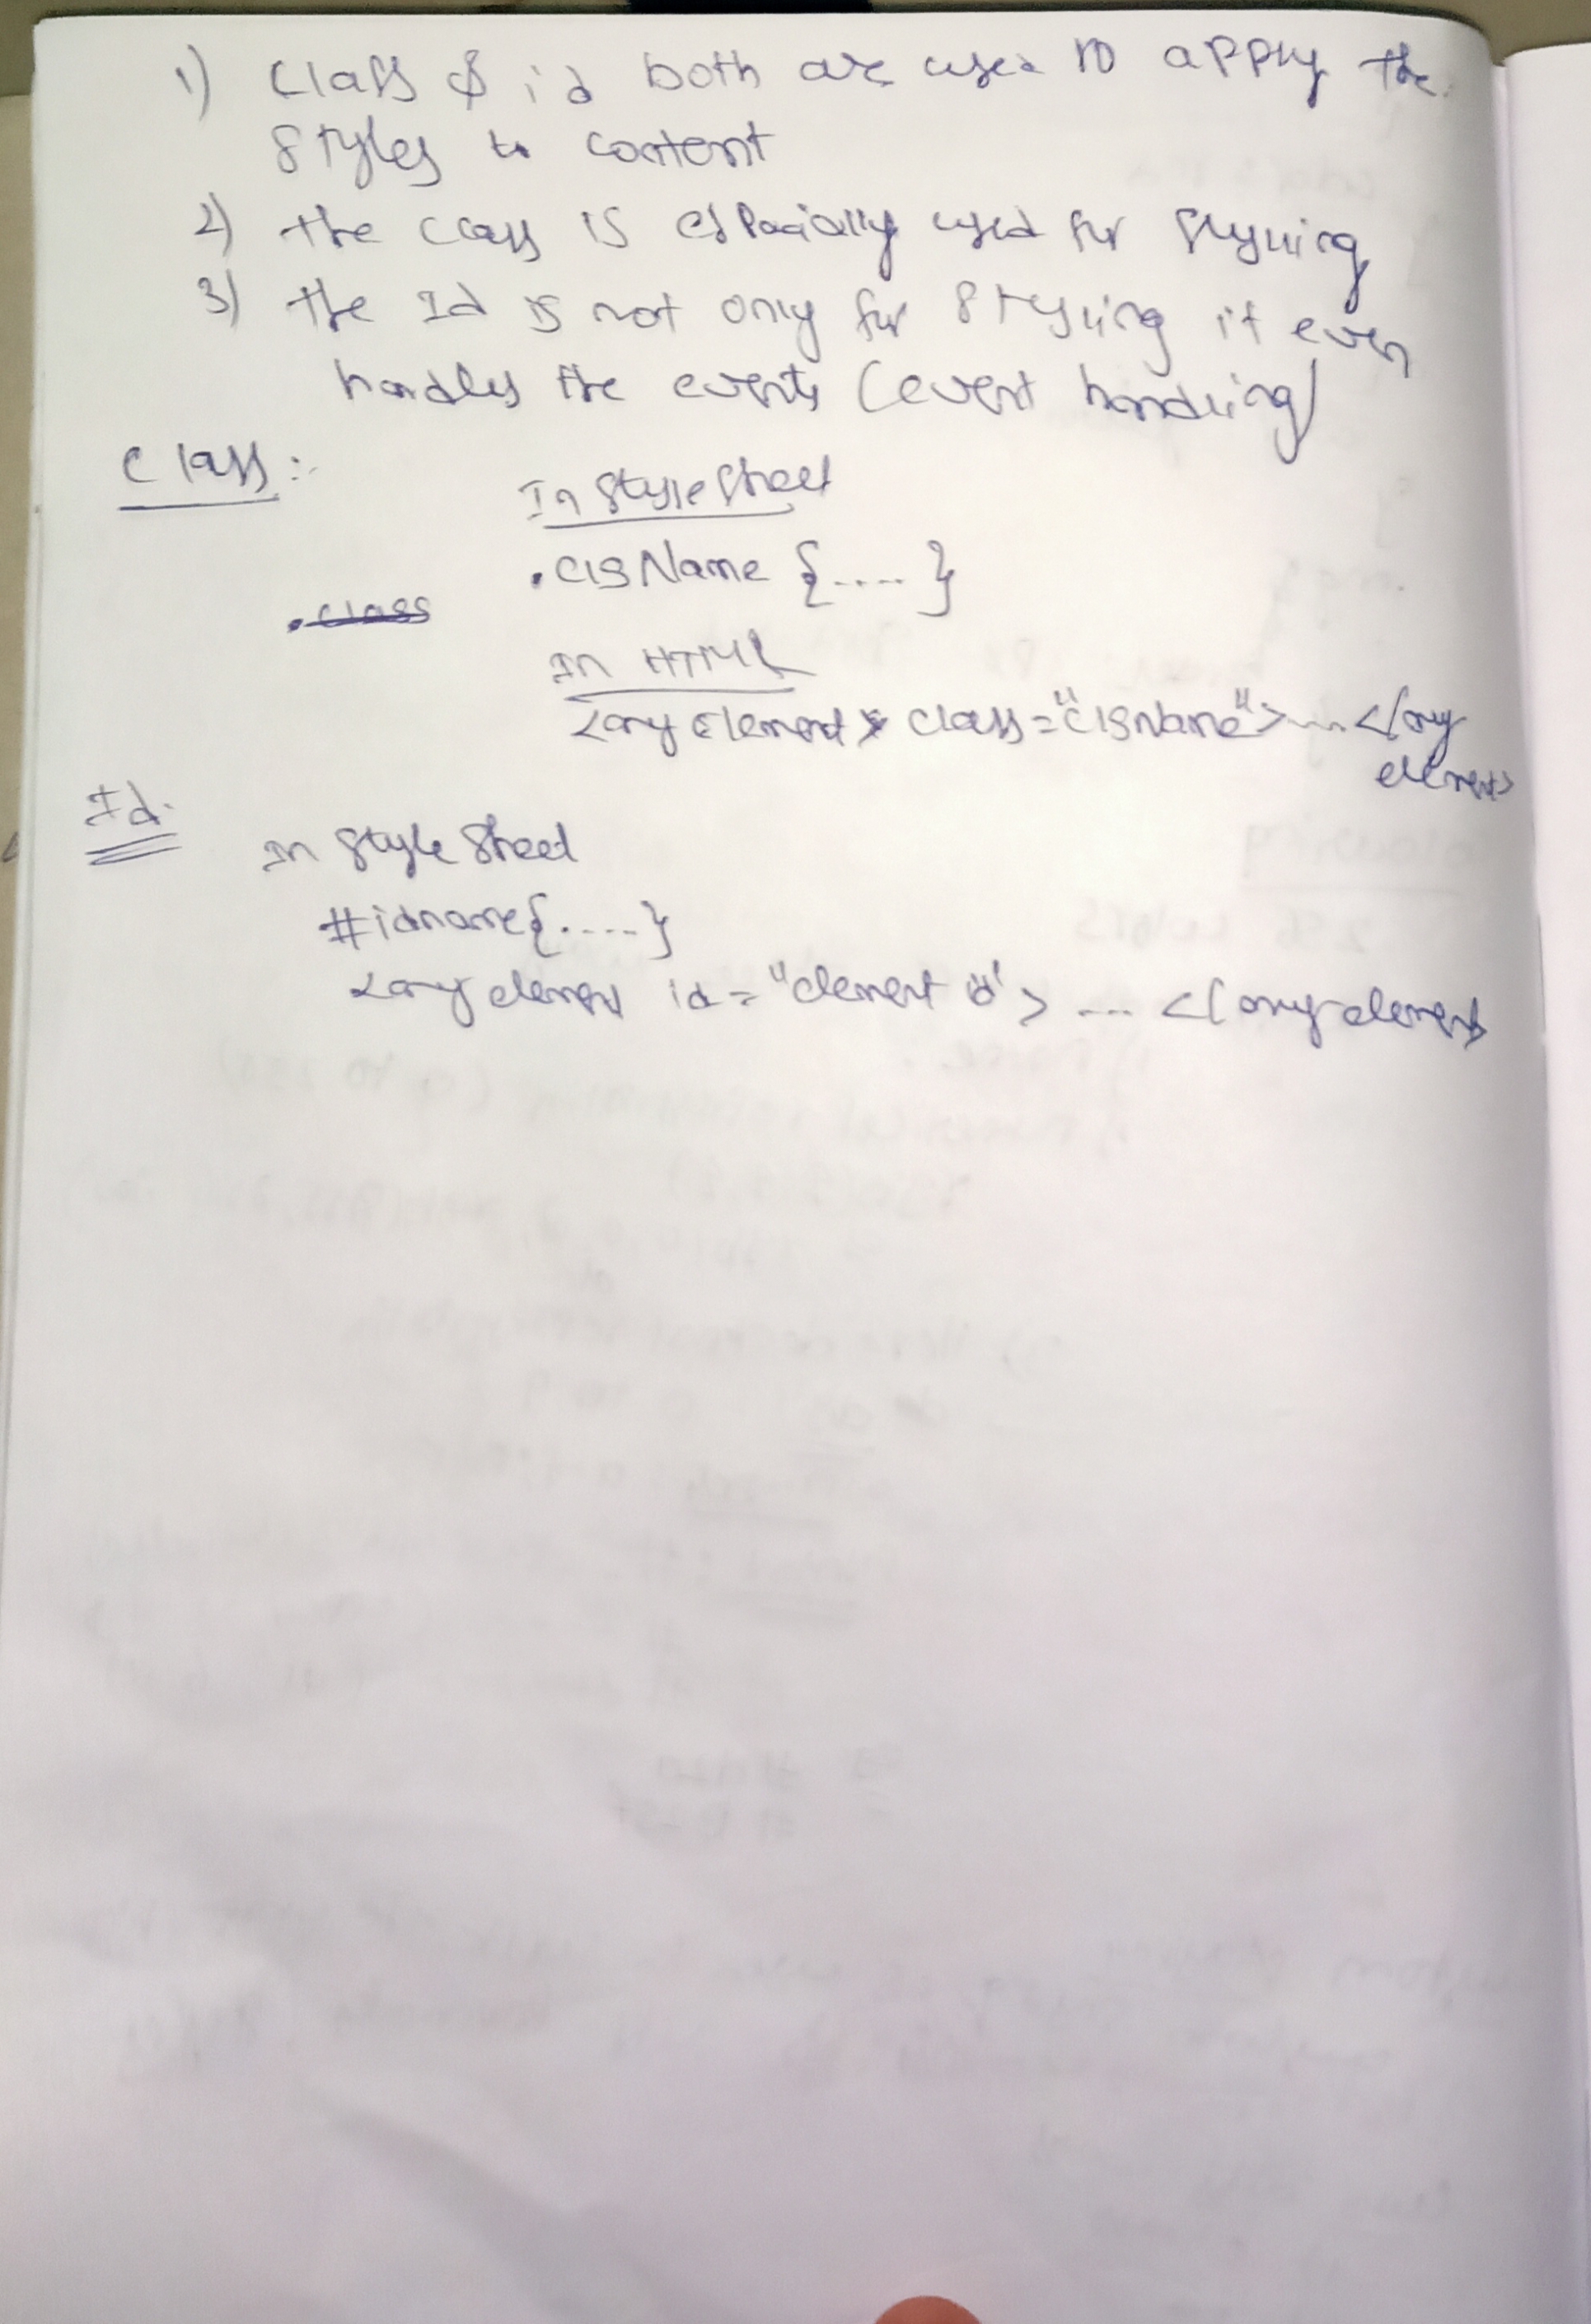 1) Class & id both are used to apply the
styles to content
2) the class is espacially used for styling
3) the Id is not only for styling it even
handles the events (event handling)
Class :-
In StyleSheet
.clsName {.....}
.class
In HTML
<any element class="clsName">....</any
element>
Id:
In Style Sheet
#idname{.....}
<any element id="element id"> .... </any element>